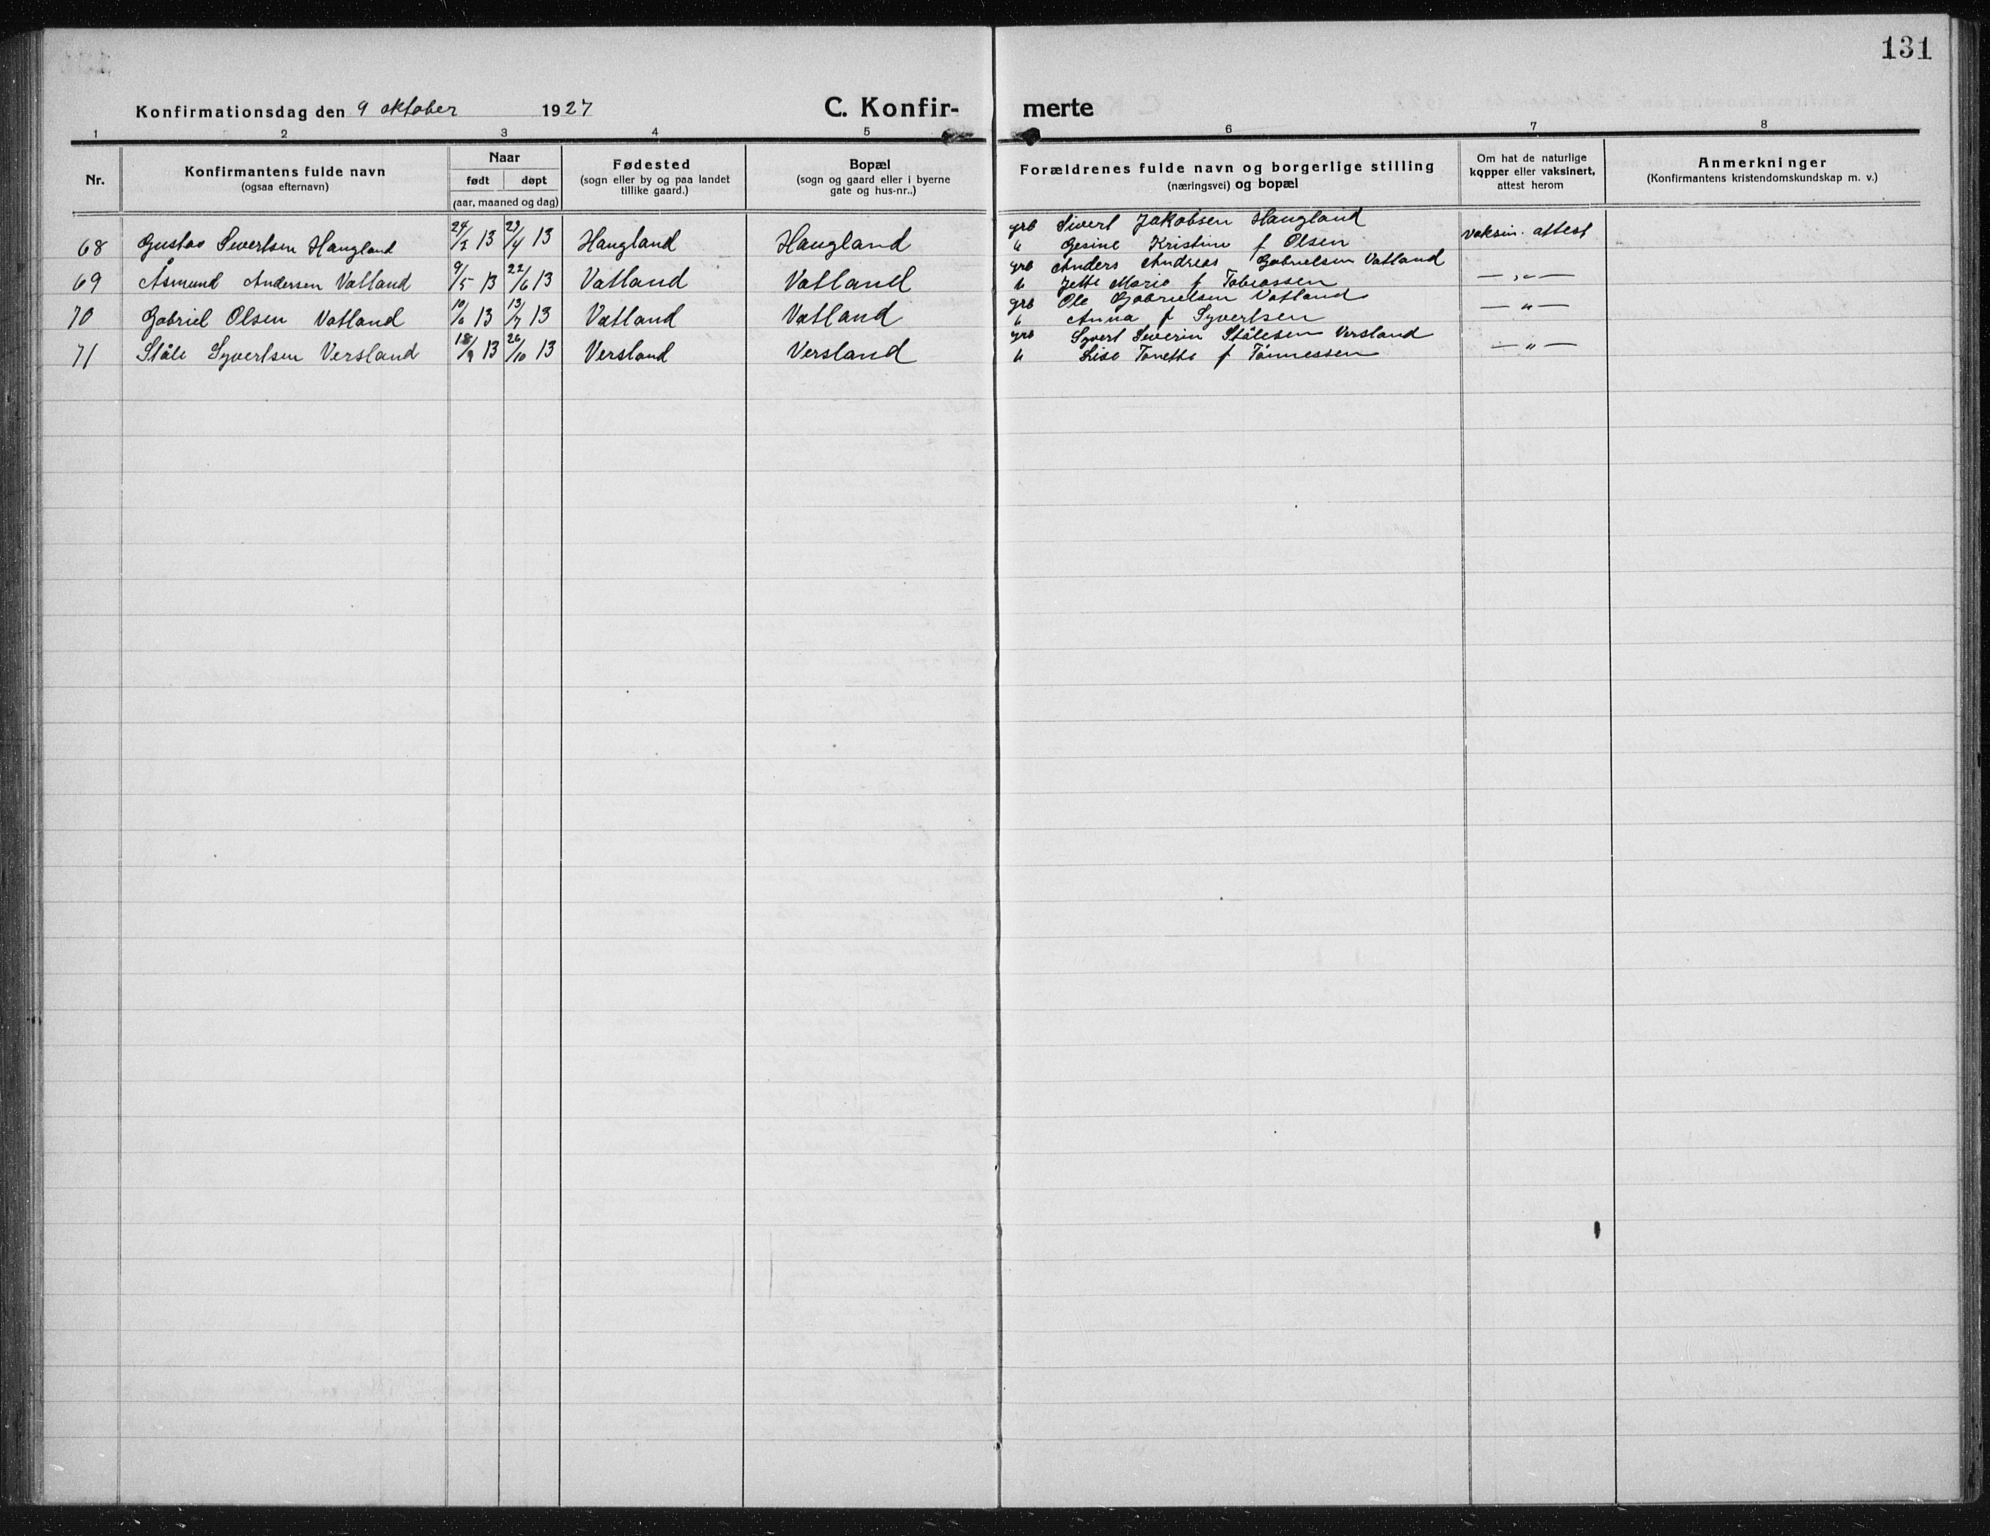 131
Konfirmationsdag den 9 oktober 1927 C. Konfir- merte
1 2 3 4 5 6 7 8
Nr. Konfirmantens fulde navn (ogsaa efternavn) Naar født døpt (aar, maaned og dag) Fødested (sogn eller by og paa landet tillike gaard.) Bopæl (sogn og gaard eller i byerne gate og hus-nr..) Forældrenes fulde navn og borgerlige stilling (næringsvei) og bopæl Om hat de naturlige kopper eller vaksinert, attest herom Anmerkninger (Konfirmantens kristendomskundskap m. v.)
68 Gustav Sivertsen Haugland 24/2 13 23/4 13 Haugland Haugland grb Sivert Jakobsen Haugland vaksin. attest
" Gesine Kristine f Olsen
69 Åsmund Andersen Vatland 9/5 13 22/6 13 Vatland Vatland grb Anders Andreas Gabrielsen Vatland — " —
" Jette Marie f Tobiassen
70 Gabriel Olsen Vatland 10/6 13 13/7 13 Vatland Vatland grb Ole Gabrielsen Vatland — " —
" Anna f Syvertsen
71 Ståle Syvertsen Versland 18/9 13 26/10 13 Versland Versland grb Syvert Severin Stålesen Versland — " —
" Lise Tonette f Tønnessen